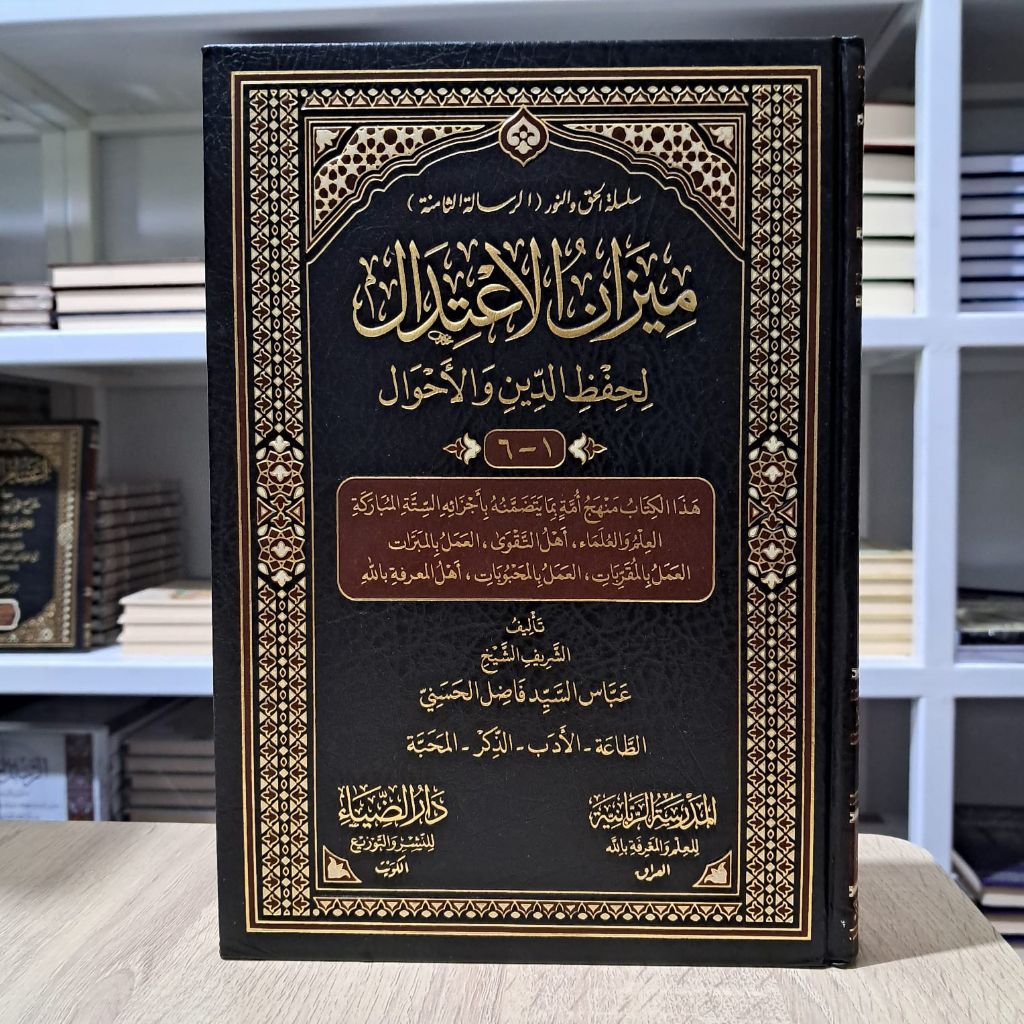 سلسلة الحق والنور (الرسالة الثامنة)
مِيزَانُ الِاعْتِدَال
لِحِفْظِ الدِّينِ وَالأَحْوَال
١ - ٦
هَذَا الكِتَابُ مَنْهَجُ أُمَّةٍ بِمَا يَتَضَمَّنُهُ بِأَجْزَائِهِ السِّتَّةِ المُبَارَكَةِ
العِلْمُ وَالعُلَمَاء، أَهْلُ التَّقْوَى، العَمَلُ بِالمَبَرَّات
العَمَلُ بِالمُقَرِّبَات، العَمَلُ بِالمَحْبُوبَات، أَهْلُ المَعرفَةِ بِالله
تَأْلِيفُ
الشَّرِيفِ الشَّيْخِ
عَبَّاس السَّيِّد فَاضِل الحَسَنِيّ
الطَّاعَة - الأَدَب - الذِّكْر - المَحَبَّة
المَدْرَسَةُ الرَّبَّانِيَّة
لِلعِلْمِ وَالمَعْرِفَةِ بِاللهِ
العراق
دَارُ الضِّيَاء
لِلنَّشْرِ وَالتَّوْزِيْعِ
الكويت